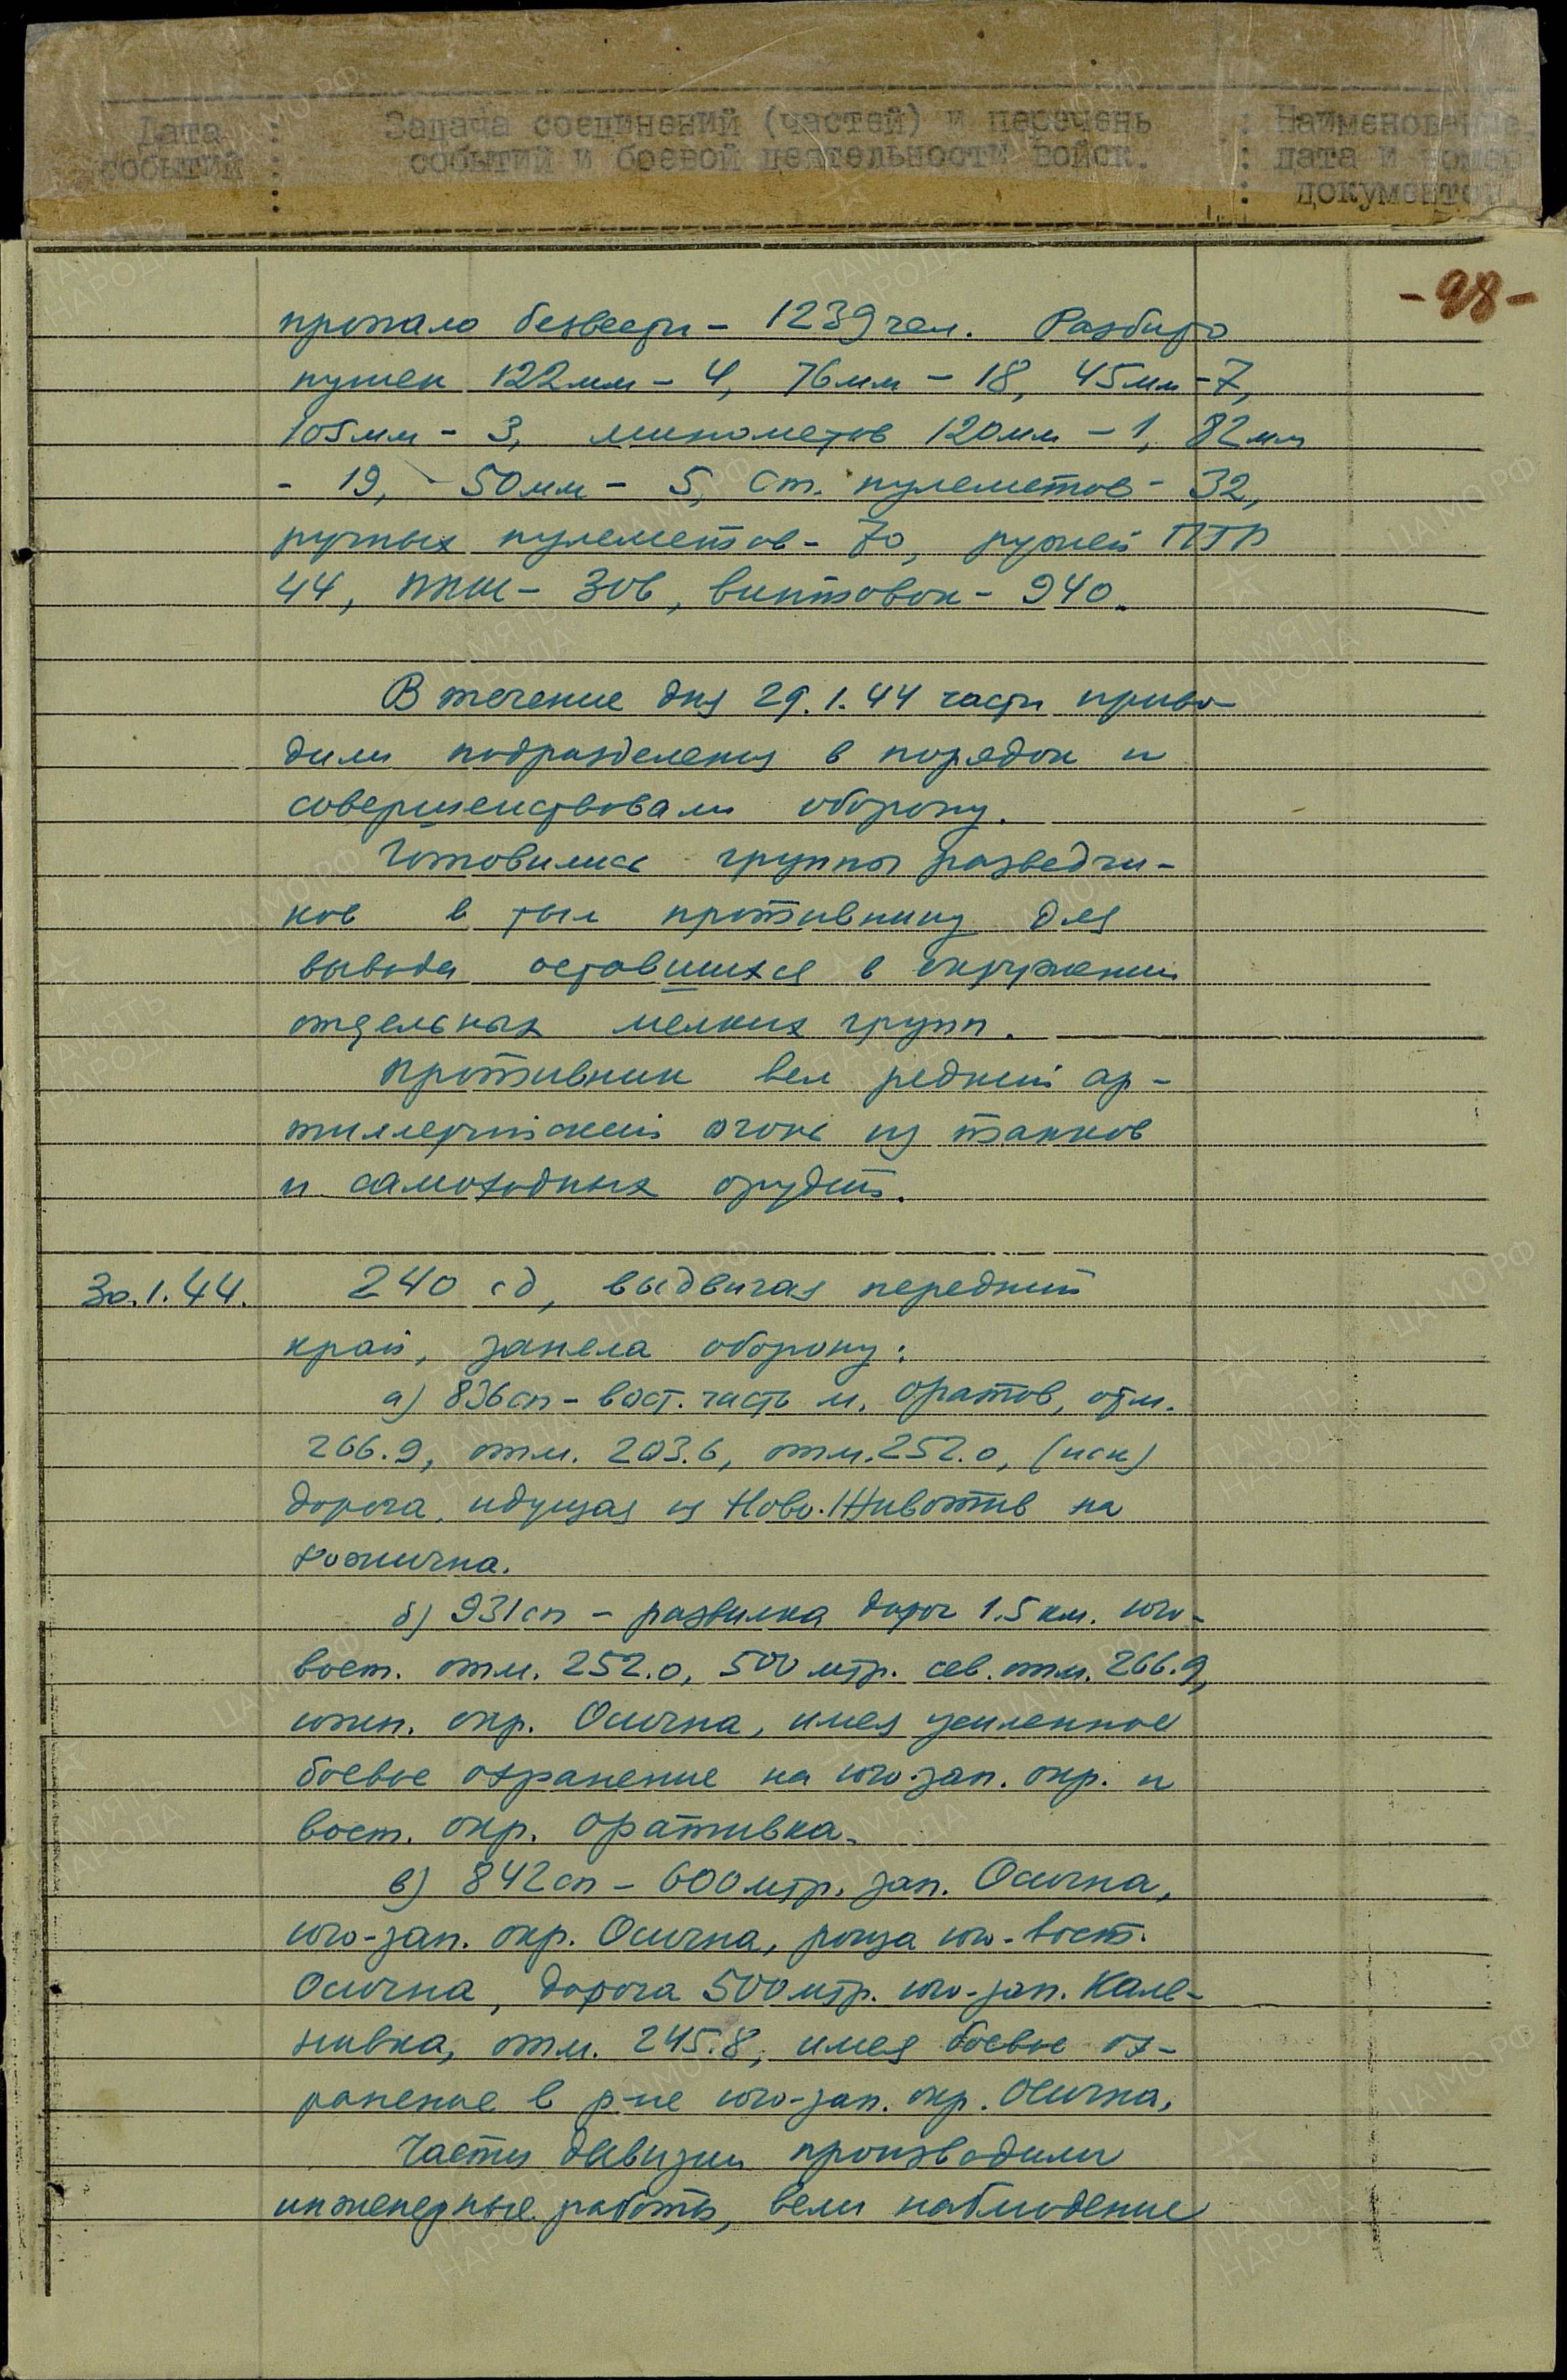 Дата : Задача соединений (частей) и перечень : Наименование,
событий : событий и боевой деятельности войск. : дата и номер
: : документов
-98-
пропало безвести - 1239 чел. Разбито
пушек 122мм - 4, 76мм - 18, 45мм - 7,
105мм - 3, минометов 120мм - 1, 82мм
- 19, - 50мм - 5, ст. пулеметов - 32,
ручных пулеметов - 70, ружей ПТР
44, ППШ - 306, винтовок - 940.
В течение дня 29.1.44 части приво-
дили подразделения в порядок и
совершенствовали оборону.
Готовились группы разведчи-
ков в тыл противнику для
вывода оставшихся в окружении
отдельных мелких групп.
Противник вел редкий ар-
тиллерийский огонь из танков
и самоходных орудий.
30.1.44. 240 сд, выдвигая передний
край, заняла оборону:
а) 836сп - вост. часть м. Оратов, отм.
266.9, отм. 263.6, отм. 252.0, (иск)
дорога, идущая из Ново.Животив на
б) 931сп - развилка дорог 1.5 км. юго-
вост. отм. 252.0, 500 мтр. сев. отм. 266.9,
южн. окр. Осична, имея усиленное
боевое охранение на юго-зап. окр. и
вост. окр. Оративка.
в) 842сп - 600мтр. зап. Осична,
юго-зап. окр. Осична, роща юго-вост.
Осична, дорога 500мтр. юго-зап. Кале-
нивка, отм. 245.8, имея боевое ох-
ранение в р-не юго-зап. окр. Осична.
Части дивизии производили
инженерные работы, вели наблюдение